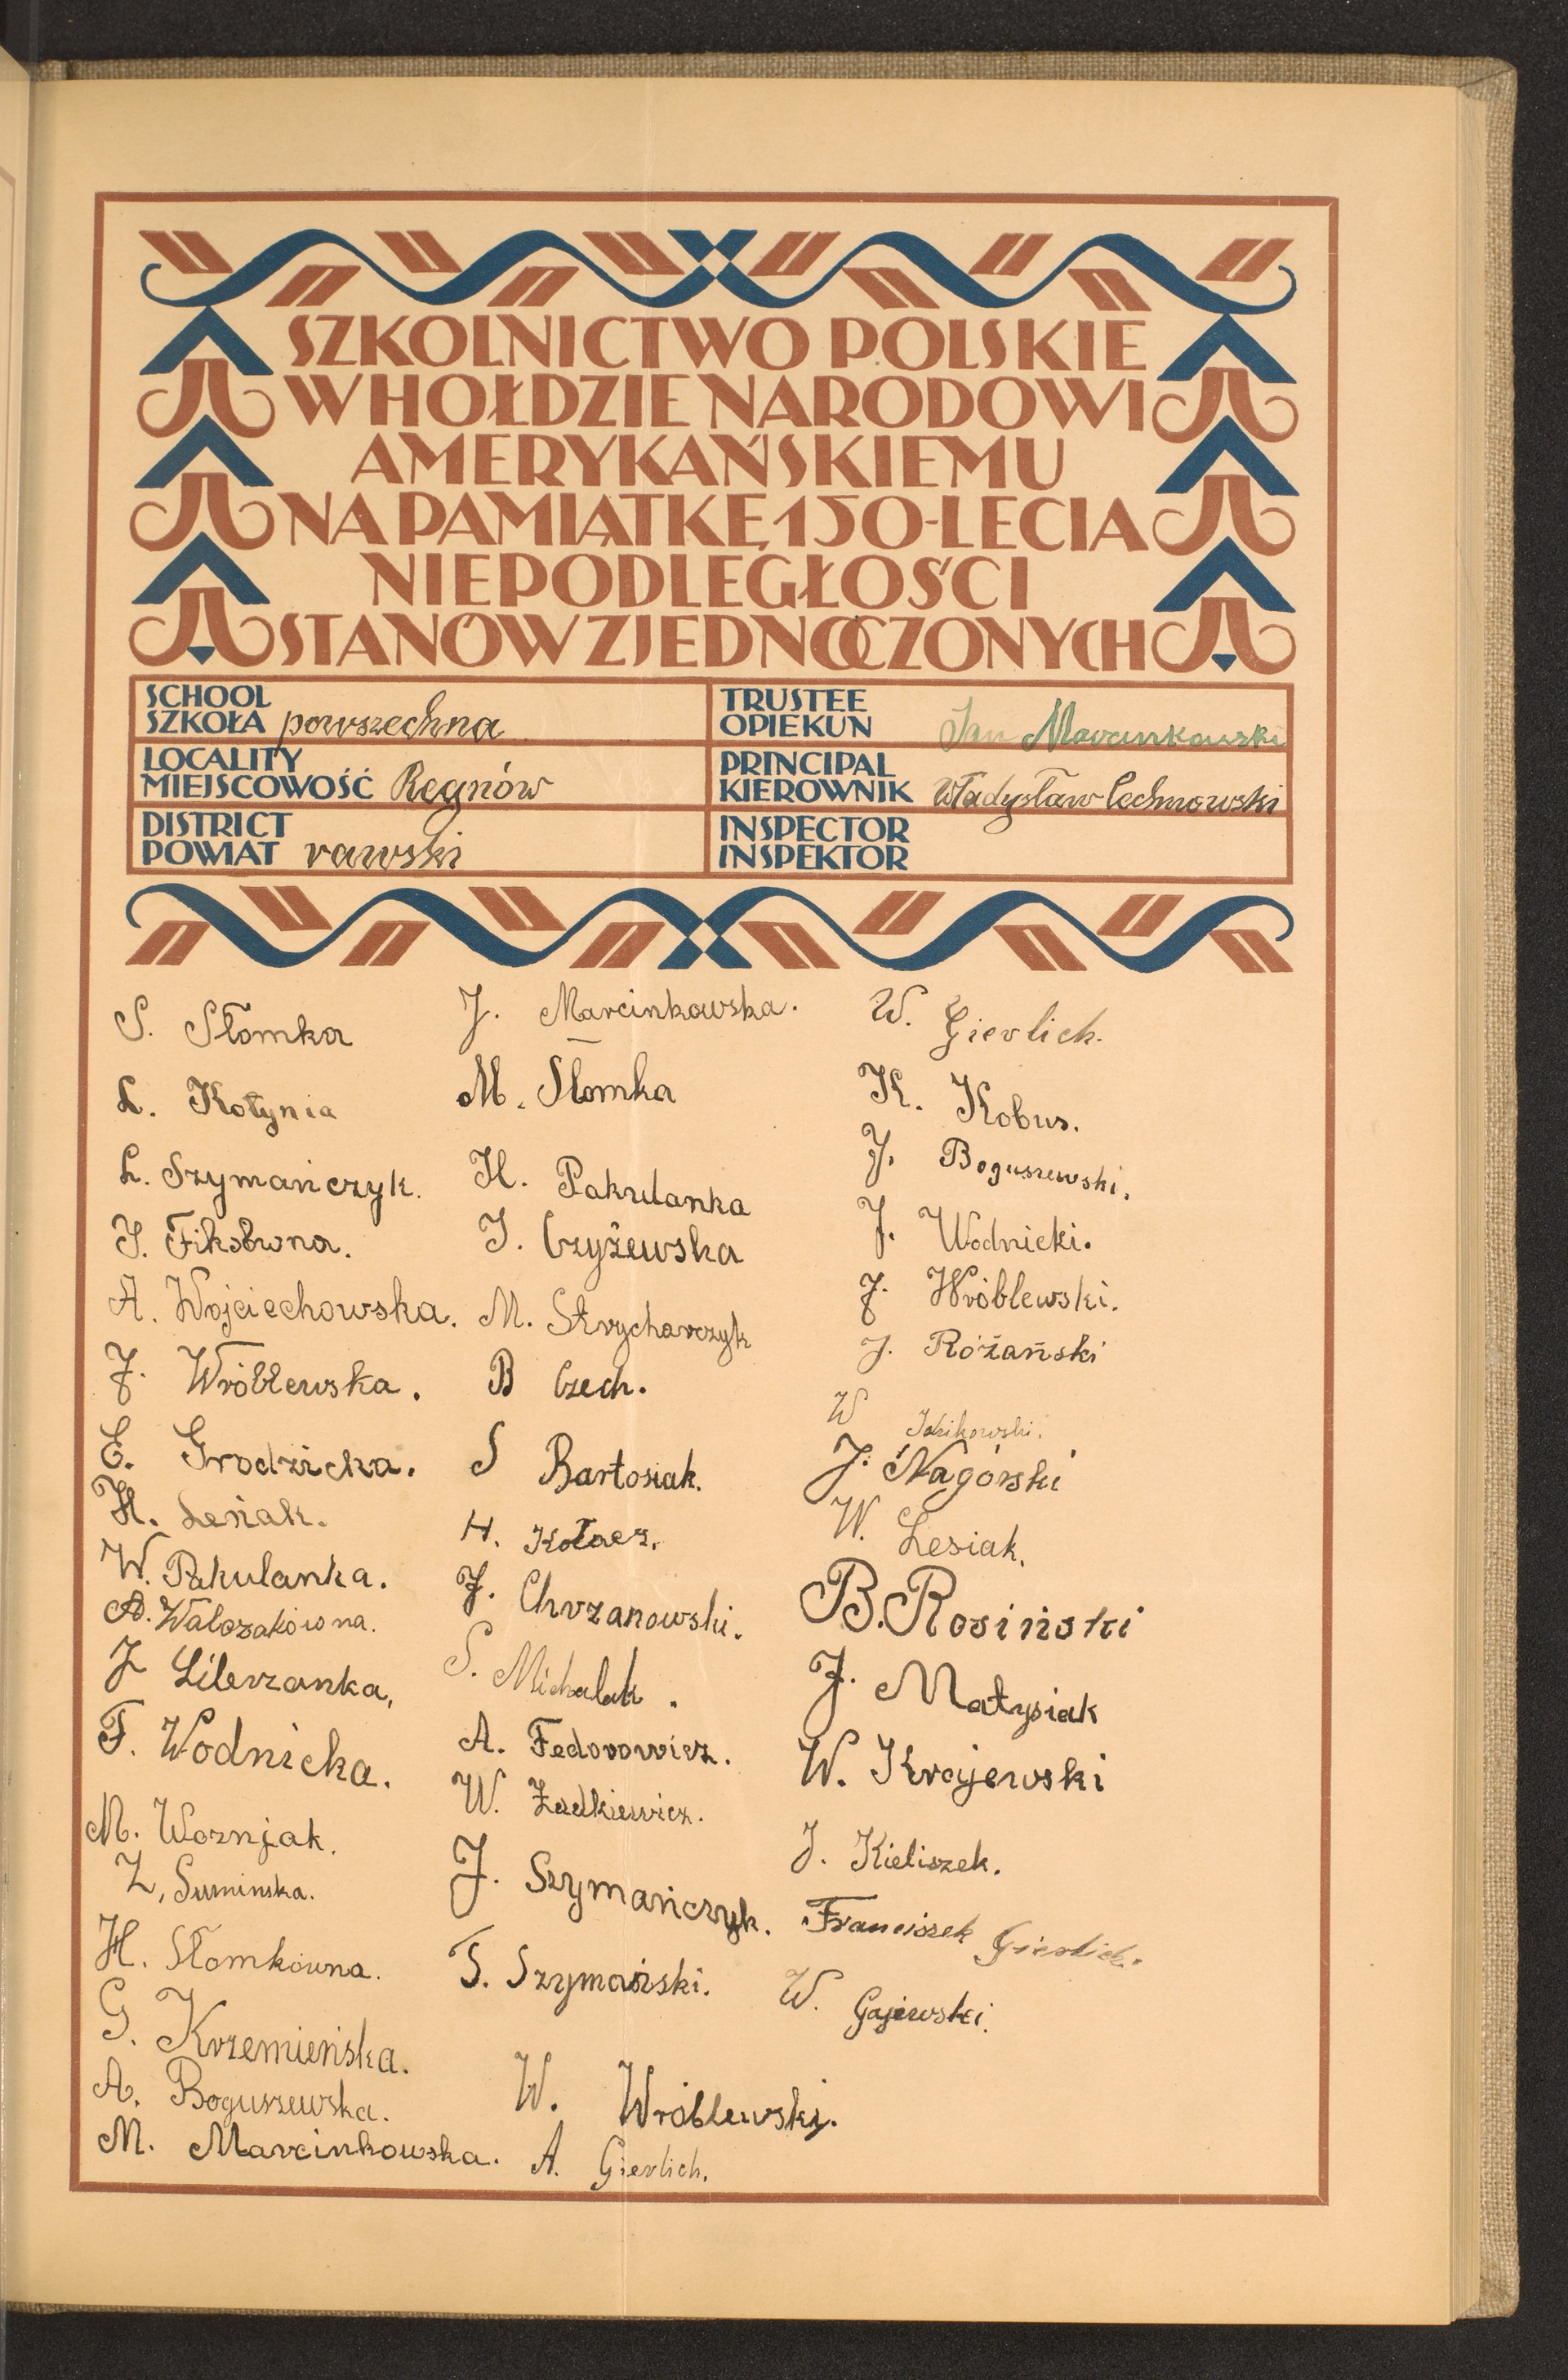 SZKOLNICTWO POLSKIE
W HOŁDZIE NARODOWI
AMERYKAŃSKIEMU
NA PAMIĄTKĘ 150-LECIA
NIEPODLEGŁOŚCI
STANÓW ZJEDNOCZONYCH
SCHOOL
SZKOŁA powszechna
LOCALITY
MIEJSCOWOŚĆ Regnów
DISTRICT
POWIAT rawski
TRUSTEE
OPIEKUN Jan Marcinkowski
PRINCIPAL
KIEROWNIK Władysław Lechnowski
INSPECTOR
INSPEKTOR
S. Słomka
L. Kołynia
L. Szymańczyk.
J. Fiksówna.
A. Wojciechowska.
J. Wróblewska.
E. Grodzicka.
H. Leśiak.
W. Pakulanka.
A. Walczakówna.
J Lilerzanka,
F. Wodnicka.
M. Wozniak.
Z. Suminska.
H. Słomkówna.
G. Krzemieńska.
A. Boguszewska.
M. Marcinkowska.
J. Marcinkowska.
M. Słomka
H. Pakulanka
J. Czyżewska
M. Strycharczyk
B Czech.
S Bartosiak.
H. Kołacz.
J. Chrzanowski.
S. Michalak.
A. Fedorowicz.
W. Żadkiewicz.
J. Szymańczyk.
T. Szymański.
W. Wróblewski.
A. Gierlich.
W. Gierlich.
K. Kobus.
J. Boguszewski.
J. Wodnicki.
J. Wróblewski.
J. Różański
W
J. Nagórski
W. Lesiak.
B. Rosiński
J. Matysiak
W. Krajewski
J. Kieliszek.
Franciszek Gierlich.
W. Gajewski.